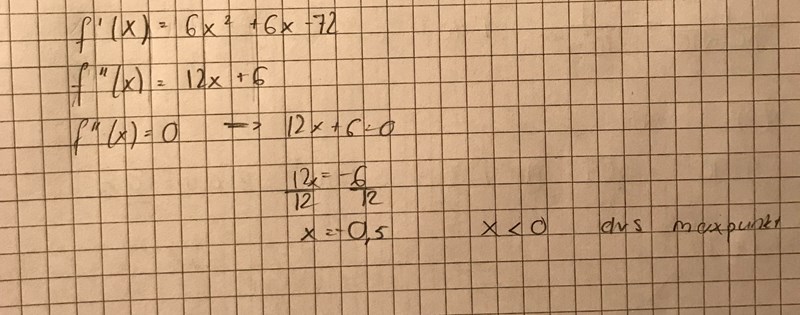 f'(x) = 6x² + 6x - 72
f''(x) = 12x + 6
f''(x) = 0 => 12x + 6 = 0
12x = -6
12 12
x = -0,5 x < 0 dvs maxpunkt